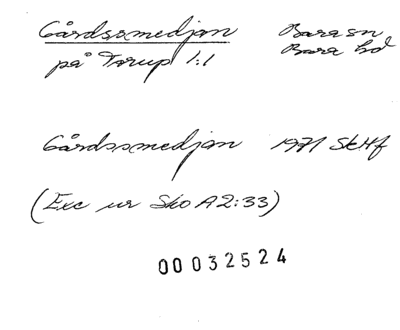 Gårdssmedjan Bara sn
på Torup 1:1 Bara hd
Gårdssmedjan 1971 SkHf
(Exc ur Sko A2:33)
00032524